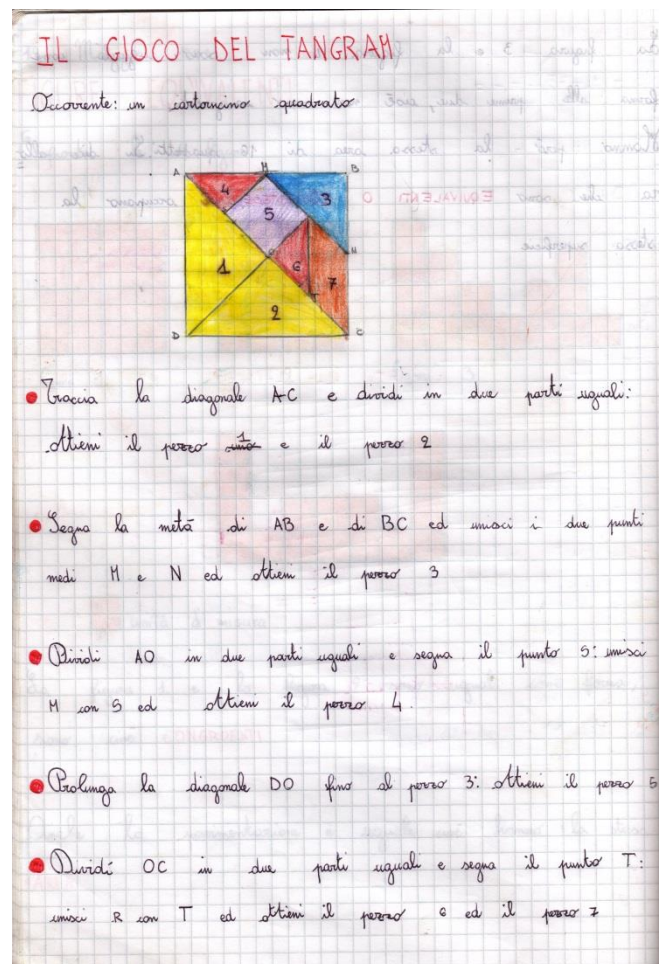 IL GIOCO DEL TANGRAM
Occorrente: un cartoncino quadrato
A M B
4
3
5
N
1
O
6
7
T
2
D C
Traccia la diagonale AC e dividi in due parti uguali:
ottieni il pezzo 1 e il pezzo 2
Segna la metà di AB e di BC ed unisci i due punti
medi M e N ed ottieni il pezzo 3
Dividi AO in due parti uguali e segna il punto S: unisci
M con S ed ottieni il pezzo 4.
Prolunga la diagonale DO fino al pezzo 3: ottieni il pezzo 5
Dividi OC in due parti uguali e segna il punto T:
unisci R con T ed ottieni il pezzo 6 ed il pezzo 7